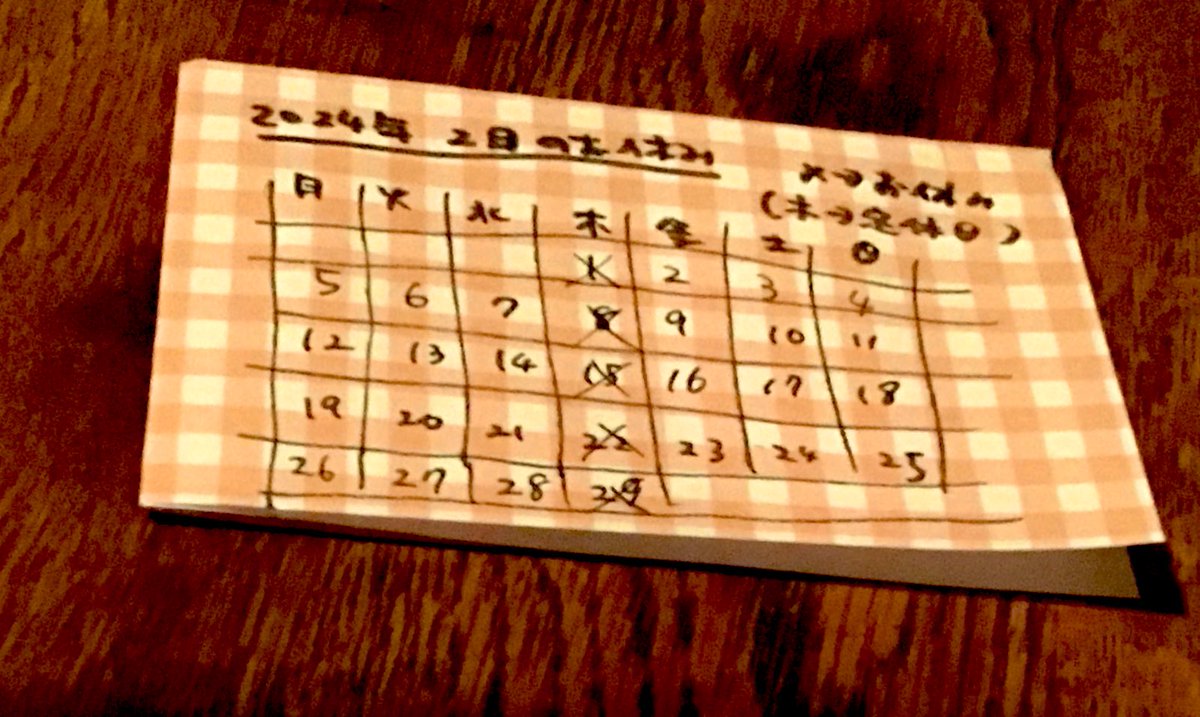 2024年 2月のお休み
×→お休み
(木→定休日)
月 火 水 木 金 土 日
1 2 3 4
5 6 7 8 9 10 11
12 13 14 15 16 17 18
19 20 21 22 23 24 25
26 27 28 29